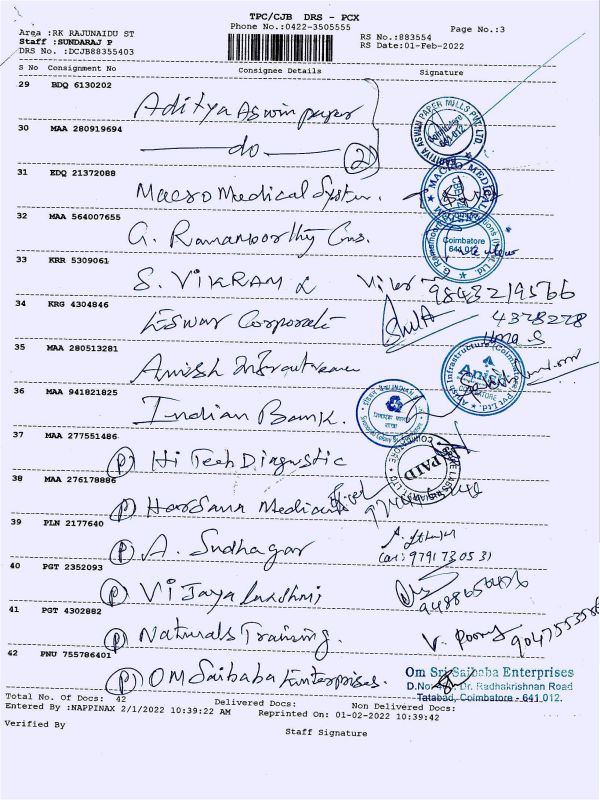 TPC/CJB DRS - PCX
Phone No.:0422-3505555
Page No.:3
Area :RK RAJUNAIDU ST
Staff :SUNDARAJ P
DRS No. :DCJB88355403
RS No.:883554
RS Date:01-Feb-2022
S No Consignment No Consignee Details Signature
29 BDQ 6130202
Aditya Aswin paper
ADITYA ASWIN PAPER MILLS PVT. LTD. Coimbatore 641 012
30 MAA 280919694
do 2
31 EDQ 21372088
Macro Medical System.
MACRO MEDICAL
32 MAA 564007655
G. Ramamoorthy Cons.
Coimbatore 641 012
33 KRR 5309061
S. VIKRAM
9843219566
34 KRG 4304846
Eswar Corporate
4378278
Uma S
35 MAA 280513281
Amish Infrastructure
Infrastructure (Coimbatore) Pvt Ltd.
36 MAA 941821825
Indian Bank.
INDIAN
37 MAA 277551486
P Hi Tech Diagnostic
PAID
38 MAA 276178886
P
39 PLN 2177640
P A. Sudhagar
9791730531
40 PGT 2352093
P Vijaya Lakshmi
41 PGT 4302882
P Naturals Training.
V.
42 PNU 755786401
P OM Saibaba Enterprises.
Om Sri Saibaba Enterprises
Dr. Radhakrishnan Road
Tatabad, Coimbatore - 641 012.
Total No. Of Docs: 42 Delivered Docs: Non Delivered Docs:
Entered By :NAPPINAX 2/1/2022 10:39:22 AM Reprinted On: 01-02-2022 10:39:42
Verified By
Staff Signature